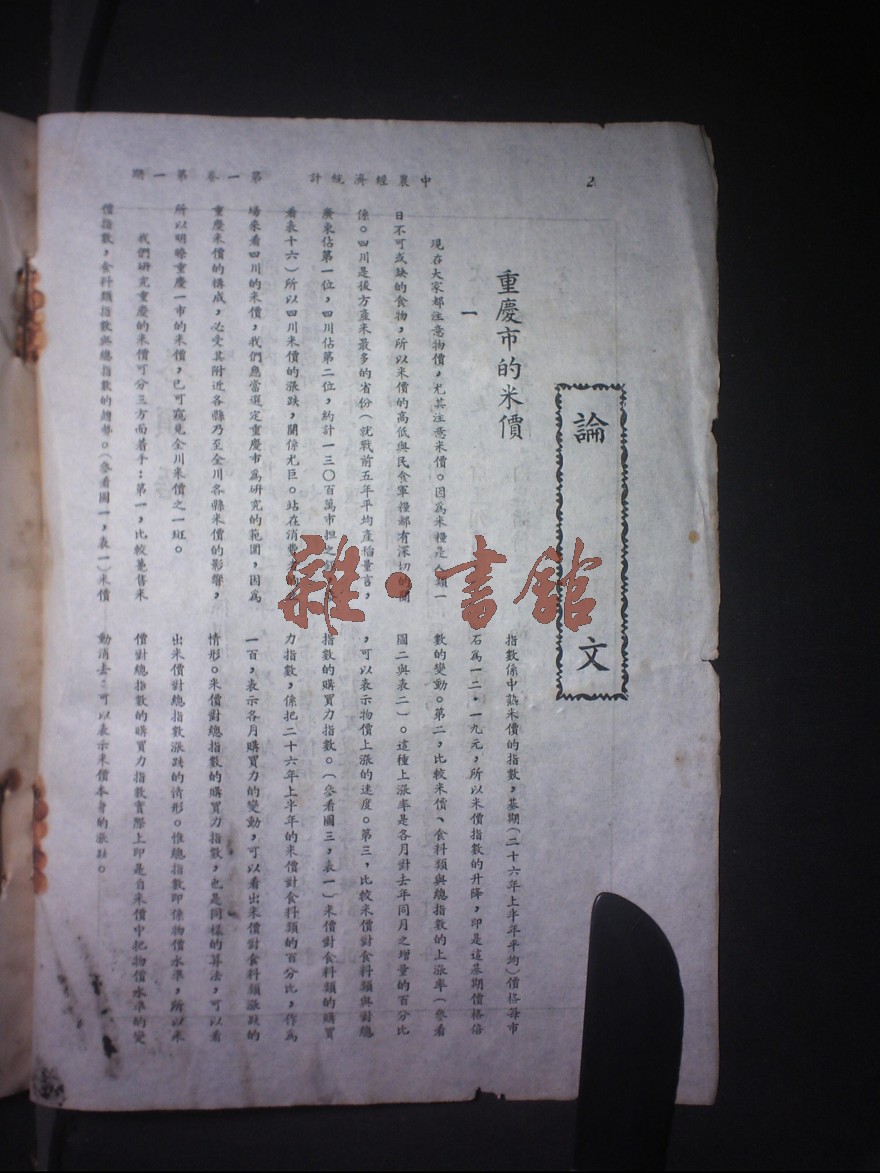 2
中農經濟統計 第一卷 第一期
論文
重慶市的米價
一
現在大家都注意物價,尤其注意米價。因為米糧是人類一
日不可或缺的食物,所以米價的高低與民食軍糧都有深切的關
係。四川是後方產米最多的省份(就戰前五年平均產秈量言,
廣東佔第一位,四川佔第二位,約計一三〇百萬市担之
看表十六)所以四川米價的漲跌,關係尤巨。站在消費
場來看四川的米價,我們應當選定重慶市為研究的範圍,因為
重慶米價的構成,必受其附近各縣乃至全川各縣米價的影響,
所以明瞭重慶一市的米價,已可窺見全川米價之一斑。
我們研究重慶的米價可分三方面着手:第一,比較躉售米
價指數,食料類指數與總指數的趨勢。(參看圖一,表一)米價
指數係中熟米價的指數,基期(二十六年上半年平均)價格每市
石為一二.一九元,所以米價指數的升降,即是這基期價格倍
數的變動。第二,比較米價、食料類與總指數的上漲率(參看
圖二與表二)。這種上漲率是各月對去年同月之增量的百分比
,可以表示物價上漲的速度。第三,比較米價對食料類與對總
指數的購買力指數。(參看圖三,表一)米價對食料類的購買
力指數,係把二十六年上半年的米價對食料類的百分比,作為
一百,表示各月購買力的變動,可以看出米價對食料類漲跌的
情形。米價對總指數的購買力指數,也是同樣的算法,可以看
出米價對總指數漲跌的情形。惟總指數即係物價水準,所以米
價對總指數的購買力指數實際上即是自米價中把物價水準的變
動消去,可以表示米價本身的漲跌。
雜·書館